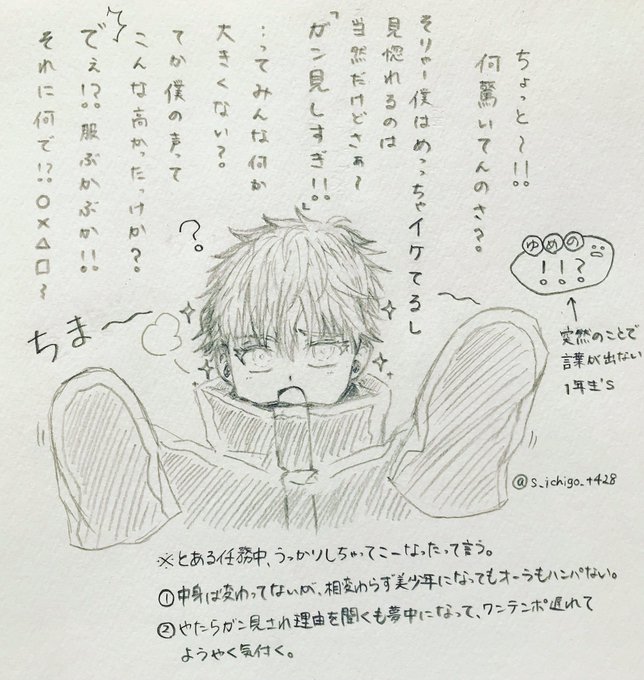 ちょっと〜!!
何驚いてんのさ?
そりゃー僕はめっっちゃイケてるし
見惚れるのは
当然だけどさぁ〜
「ガン見しすぎ!!」
…ってみんな何か
大きくない?
てか僕の声って
こんな高かったっけか?
でぇ!?服ぶかぶか!!
それに何で!?○×△□〜
?
ちま〜
ゆめの
!!?
突然のことで
言葉が出ない
1年生's
@s_ichigo_t428
※とある任務中、うっかりしちゃってこーなったって言う。
①中身は変わってないが、相変わらず美少年になってもオーラもハンパない。
②やたらガン見され理由を聞くも夢中になって、ワンテンポ遅れて
ようやく気付く。